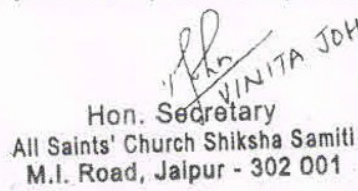 VINITA JOH
Hon. Secretary
All Saints' Church Shiksha Samiti
M.I. Road, Jaipur - 302 001